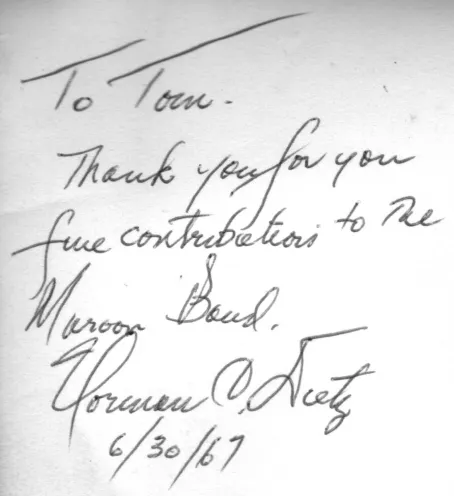 To Tom.
Thank you for you
fine contributions to the
Maroon Band.
Norman C. Dietz
6/30/67